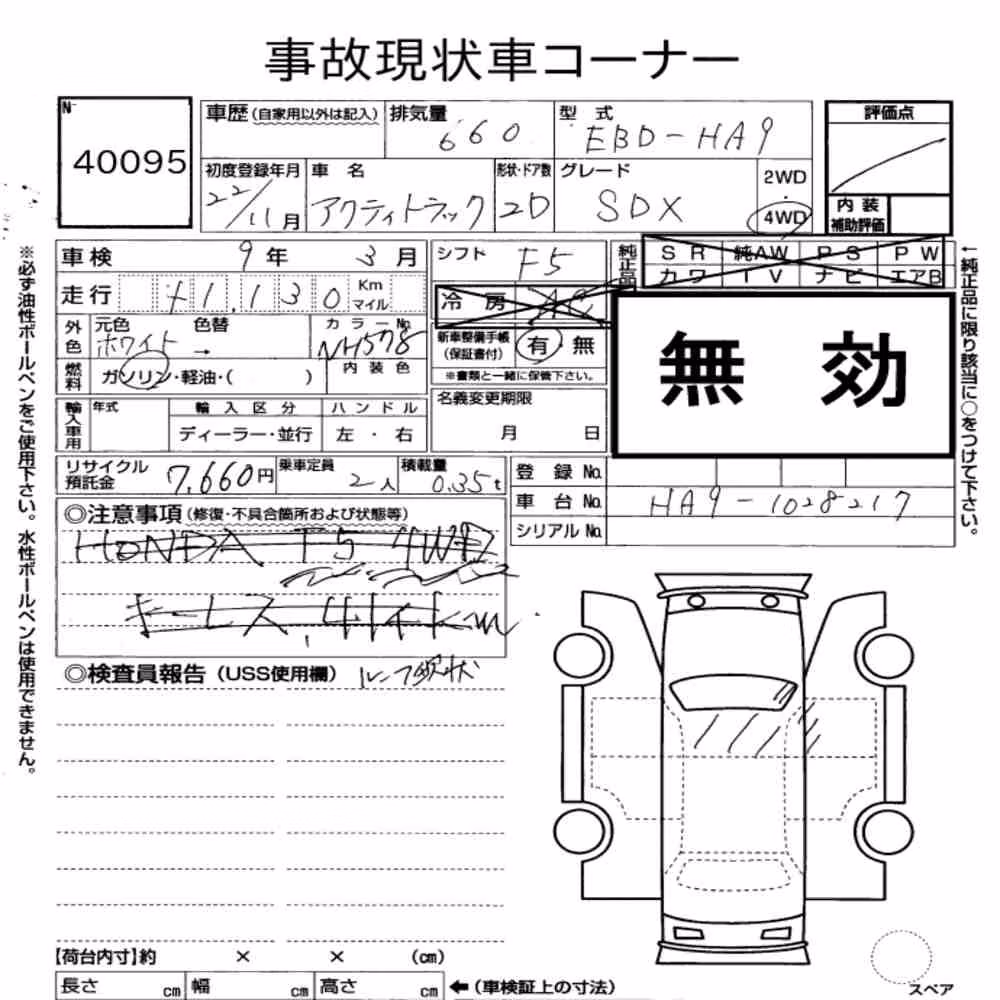 事故現状車コーナー
№
40095
車歴(自家用以外は記入)
排気量
660
型式
EBD-HA9
評価点
初度登録年月
22/11月
車名
アクティトラック
形状・ドア数
2D
グレード
SDX
2WD
・
4WD
内装
補助評価
車検
9年 3月
シフト
F5
純正品
SR 純AW PS PW
カワ TV ナビ エアB
走行
41,130
Km
マイル
冷房
AC
無効
外色
元色 色替
ホワイト →
カラーNo.
NH578
新車整備手帳
(保証書付)
有・無
※書類と一緒に保管下さい。
燃料
ガソリン・軽油・( )
内装色
輸入車用
年式
輸入区分
ディーラー・並行
ハンドル
左・右
名義変更期限
月 日
リサイクル
預託金
7,660円
乗車定員
2人
積載量
0.35t
登録No.
車台No.
HA9-1028217
シリアルNo.
◎注意事項(修復・不具合箇所および状態等)
HONDA F5 4WD
キーレス,
◎検査員報告(USS使用欄)
ルーフ現状
【荷台内寸】約 × × (cm)
長さ cm 幅 cm 高さ cm ←(車検証上の寸法)
スペア
※必ず油性ボールペンをご使用下さい。水性ボールペンは使用できません。
←純正品に限り該当に○をつけて下さい。